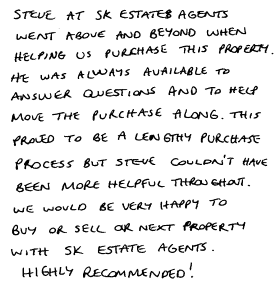 STEVE AT SK ESTATES AGENTS
WENT ABOVE AND BEYOND WHEN
HELPING US PURCHASE THIS PROPERTY.
HE WAS ALWAYS AVAILABLE TO
ANSWER QUESTIONS AND TO HELP
MOVE THE PURCHASE ALONG. THIS
PROVED TO BE A LENGTHY PURCHASE
PROCESS BUT STEVE COULDN'T HAVE
BEEN MORE HELPFUL THROUGHOUT.
WE WOULD BE VERY HAPPY TO
BUY OR SELL OR NEXT PROPERTY
WITH SK ESTATE AGENTS.
HIGHLY RECOMMENDED!